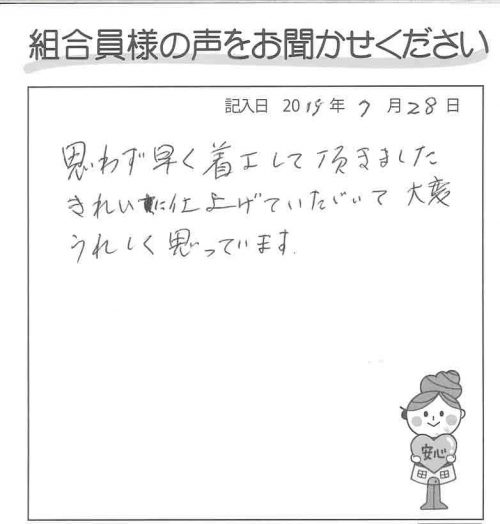 組合員様の声をお聞かせください
記入日 2019年 7月28日
思わず早く着工して頂きました
きれいに仕上げていただいて 大変
うれしく思っています.
安心